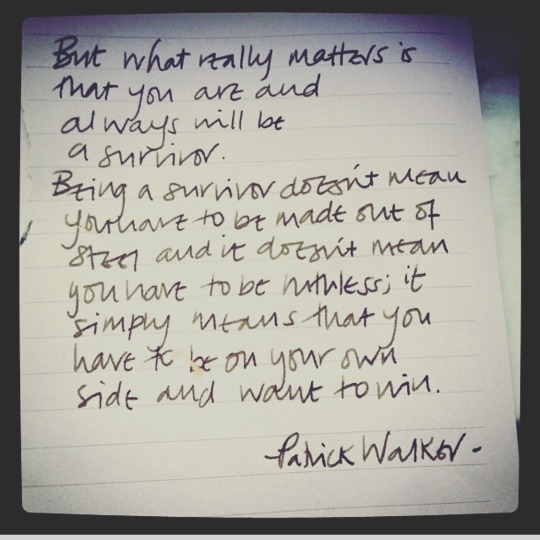 But what really matters is
that you are and
always will be
a survivor.
Being a survivor doesn't mean
you have to be made out of
steel and it doesn't mean
you have to be ruthless; it
simply means that you
have to be on your own
side and want to win.
-Patrick Walker-